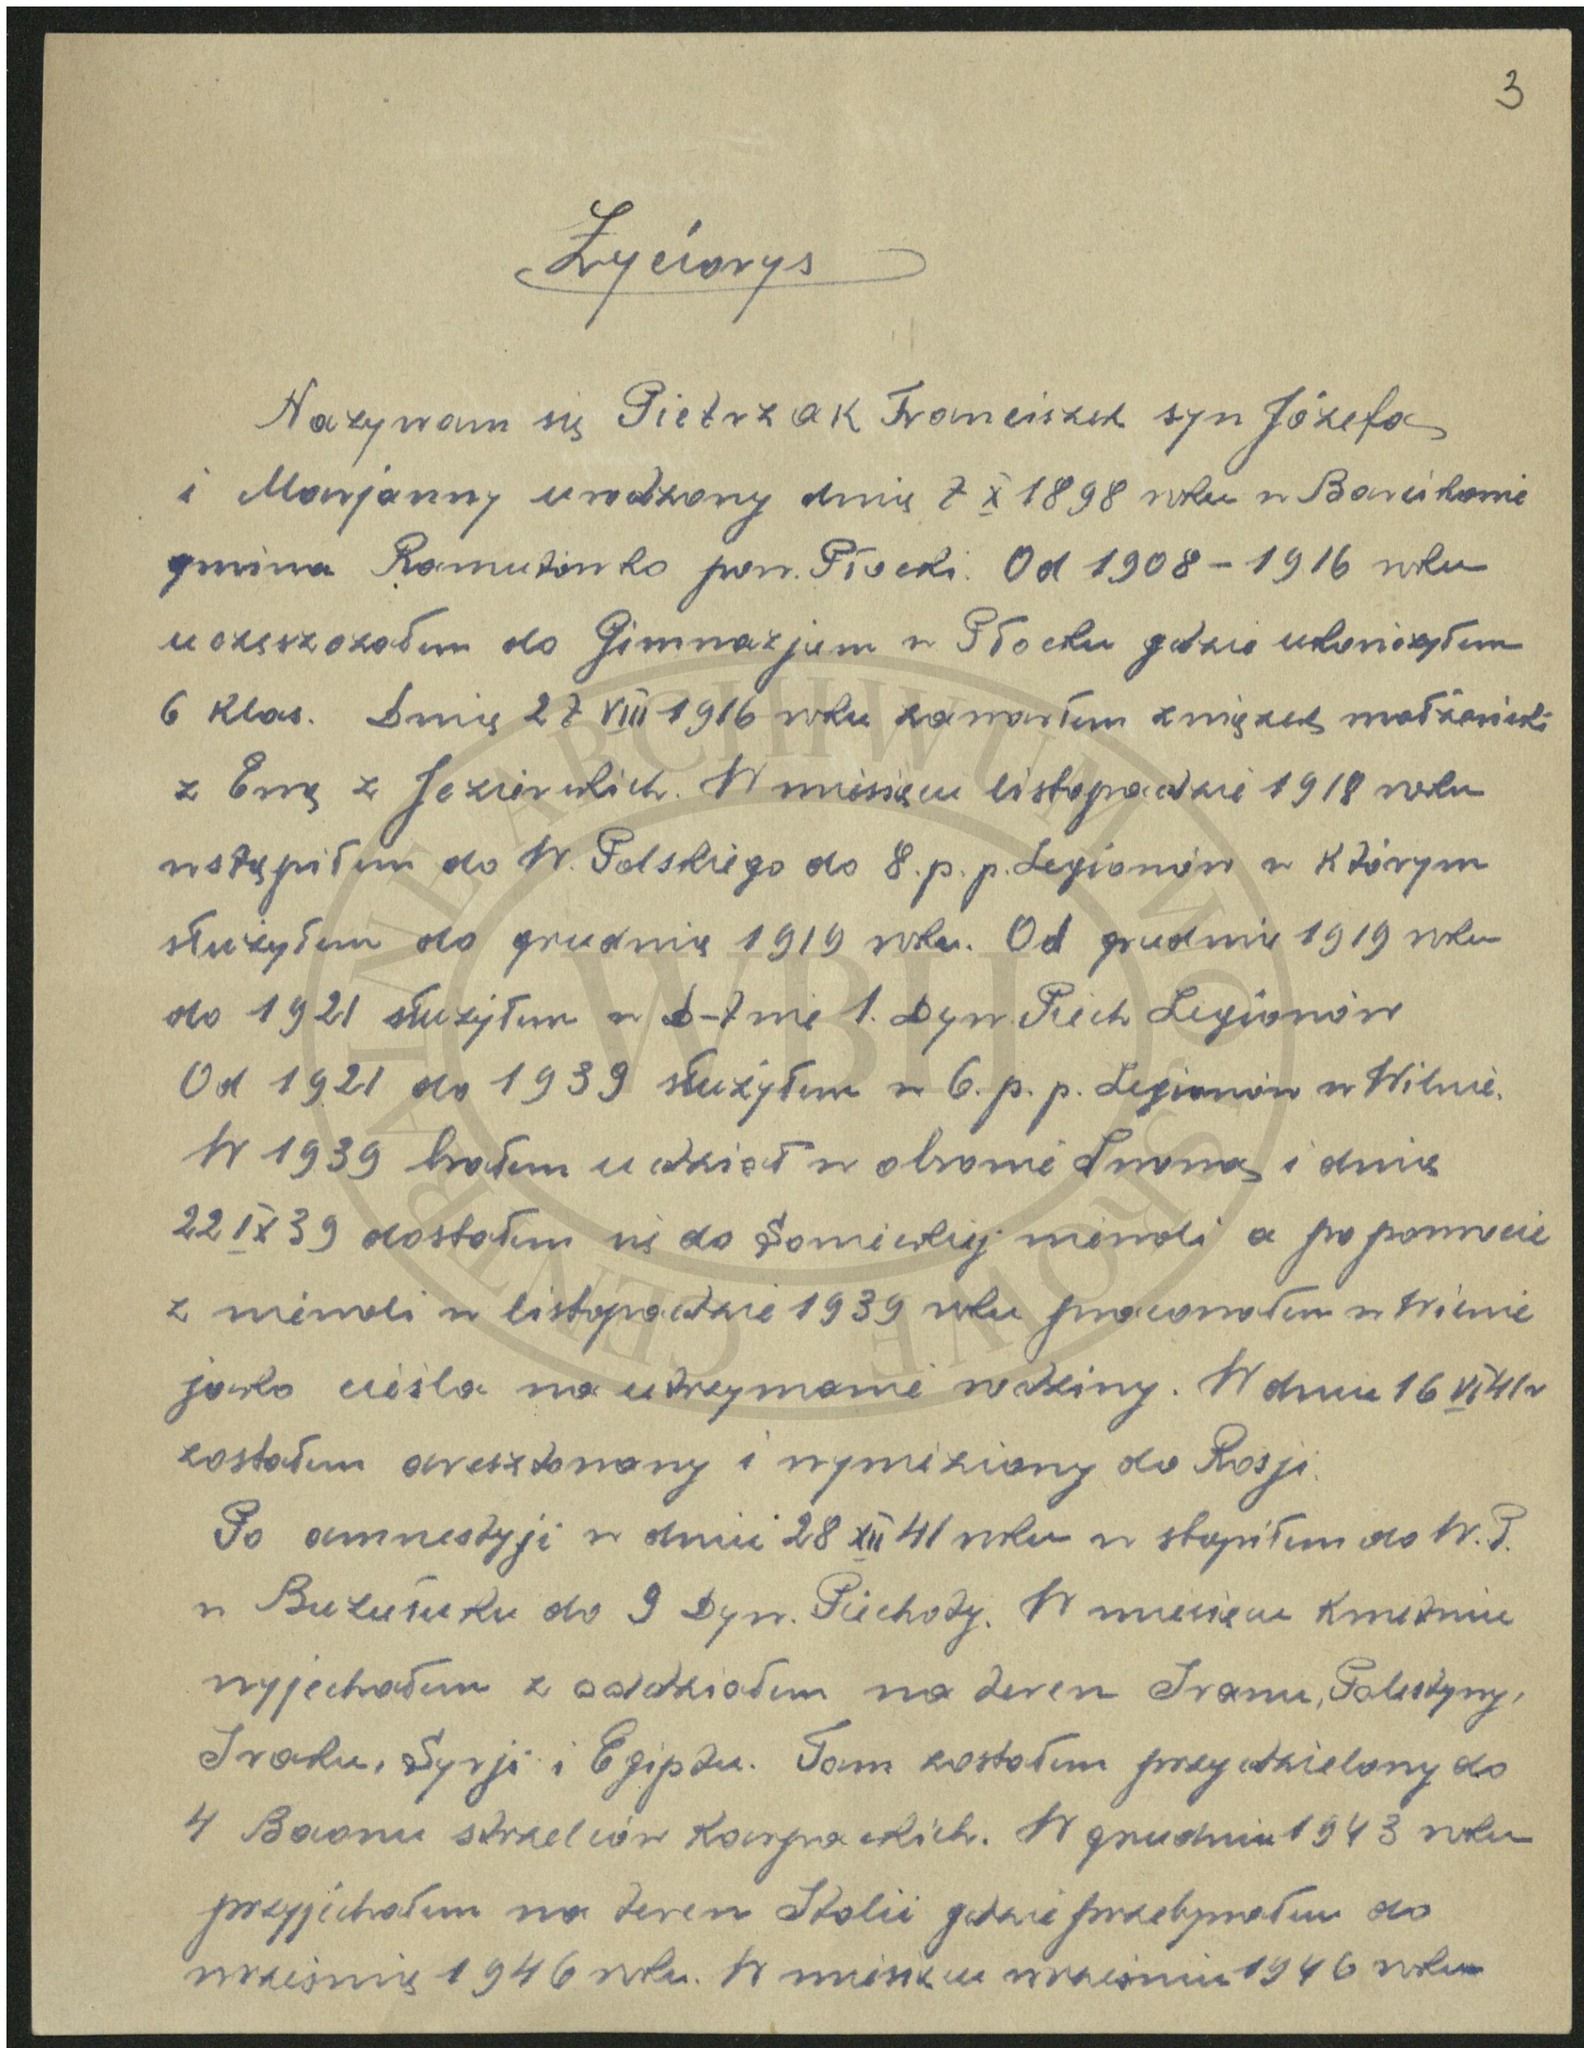 3
Życiorys
Nazywam się Pietrzak Franciszek syn Józefa
i Marjanny urodzony dnię 7 X 1898 roku w Barcikowie
gmina Ramutówko pow. Płocki. Od 1908 – 1916 roku
uczęszczałem do Gimnazjum w Płocku gdzie ukończyłem
6 klas. Dnię 27 VIII 1916 roku zawarłem związek małżeński
z Ewą z Jezierskich. W miesięcu listopadzie 1918 roku
wstąpiłem do W. Polskiego do 8. p. p. Legionów w którym
służyłem do grudnię 1919 roku. Od grudnię 1919 roku
do 1921 służyłem w D-twie 1. Dyw. Piech Legionów
Od 1921 do 1939 służyłem w 6. p. p. Legionów w Wilnie.
W 1939 brałem udział w obronie Lwowa i dnię
22 IX 39 dostałem się do Sowieckiej niewoli a po powrocie
z niewoli w listopadzie 1939 roku pracowałem w Wilnie
jako cieśla na utrzymanie rodziny. W dniu 16 VI 41 r
zostałem aresztowany i wywieziony do Rosji.
Po amnestyji w dniu 28 XII 41 roku w stąpiłem do W. P.
w Buzułuku do 9 Dyw. Piechoty. W miesięcu kwietniu
wyjechałem z oddziałem na teren Iranu, Palestyny,
Iraku, Syrji i Egiptu. Tam zostałem przydzielony do
4 Baonu strzelców Karpackich. W grudniu 1943 roku
przyjechałem na teren Italii gdzie przebywałem do
wrześnię 1946 roku. W miesięcu wrześniu 1946 roku
CENTRALNE ARCHIWUM WOJSKOWE
WBH